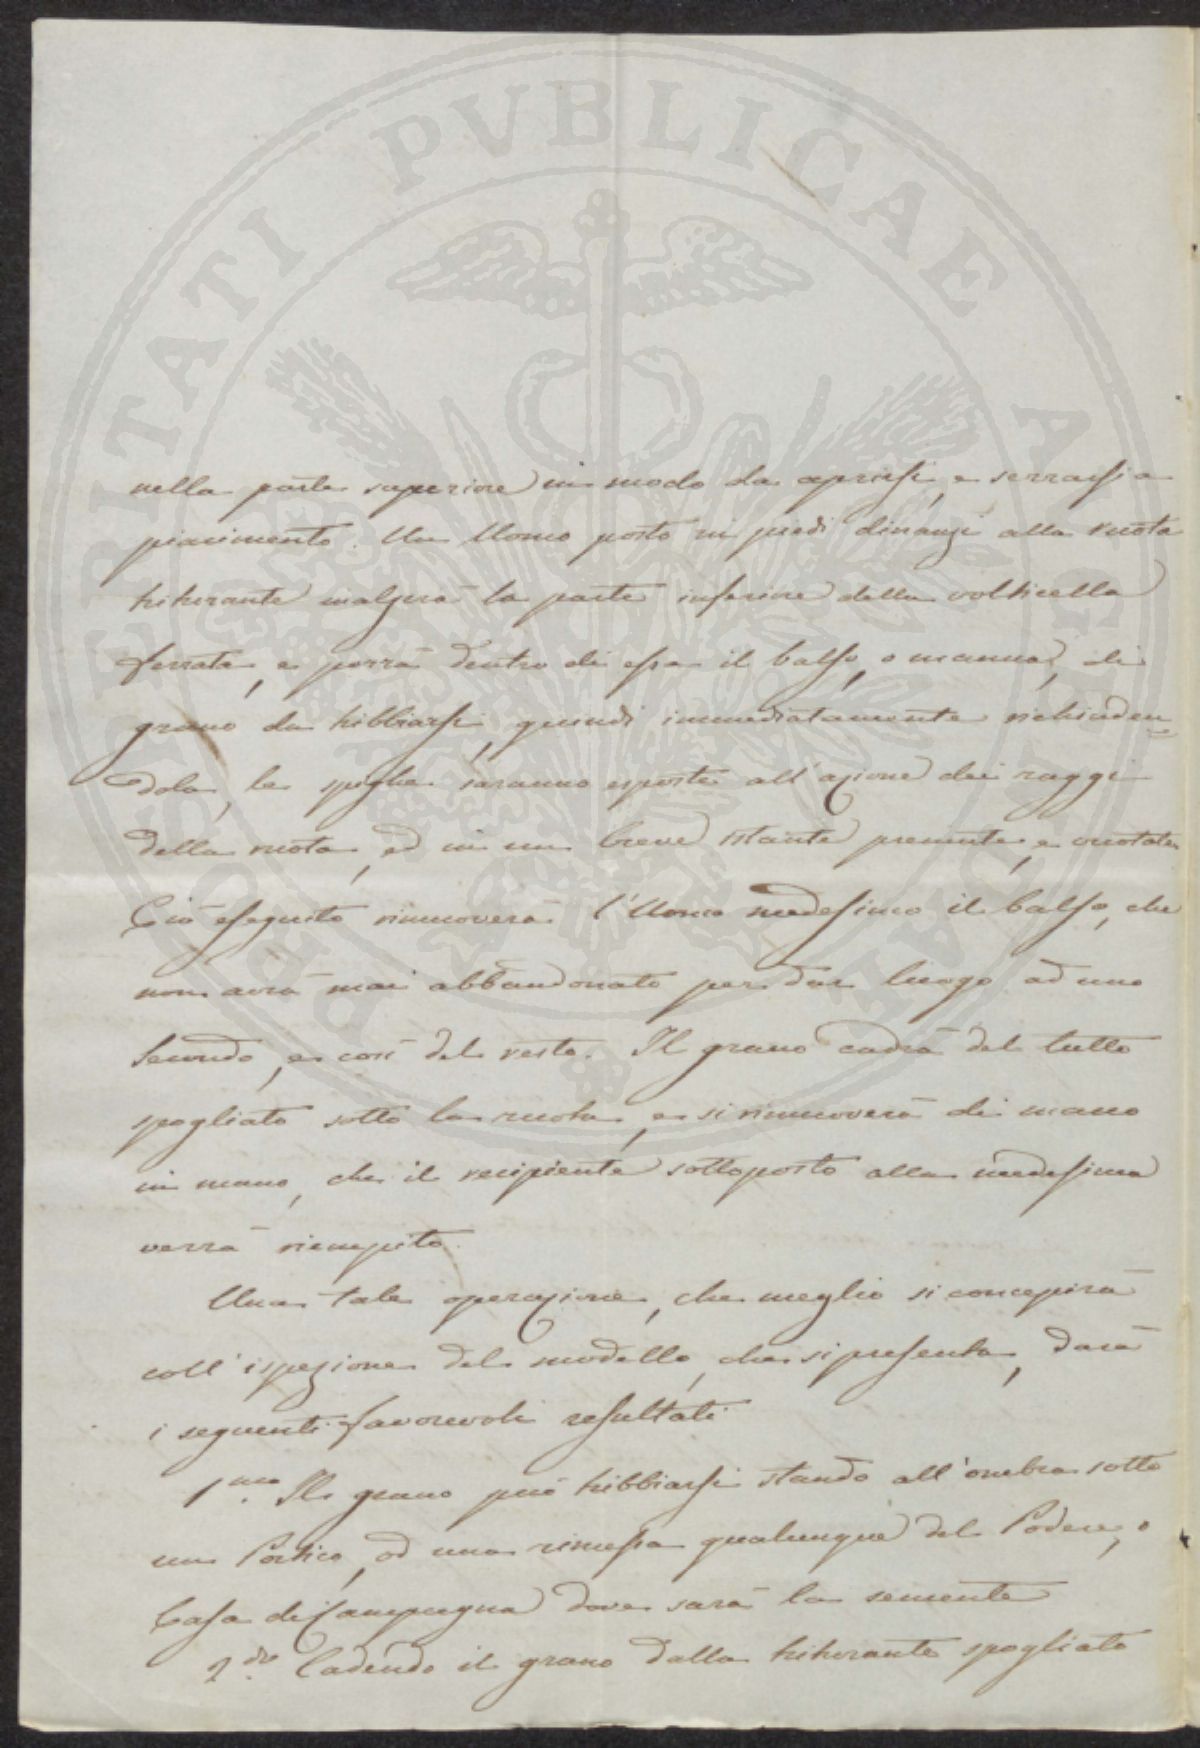 PROSPERITATI PVBLICAE AVGENDAE
nella parte superiore in modo da aprirsi, e serrarsi a
piacimento. Un Uomo posto in piedi dinanzi alla ruota
triturante inalzerà la parte inferiore della volticella
ferrata, e porrà dentro di essa il balzo, o manna, di
grano da tribbiarsi, quindi immediatamente richiuden=
dola, le spighe saranno esposte all'azione dei raggi
della ruota, ed in un breve istante premute, e vuotate
Ciò eseguito rimuoverà l'Uomo medesimo il balzo, che
non avrà mai abbandonato per dar luogo ad uno
Secondo, e così del resto. Il grano cadrà del tutto
spogliato sotto la ruota, e si rimuoverà di mano
in mano, che il recipiente sottoposto alla medesima
verrà riempito.
Una tale operazione, che meglio si concepirà
coll'ispezione del modello, che si presenta, darà
i seguenti favorevoli resultati
1.mo Il grano può tribbiarsi stando all'ombra sotto
un Portico, od una rimessa qualunque del Podere, o
Casa di Campagna dove sarà la semente
2.do Cadendo il grano dalla triturante spogliato